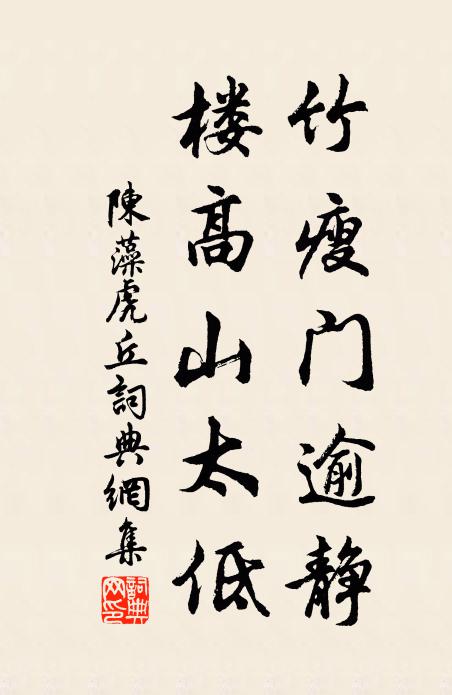 竹瘦门逾静
楼高山太低
陳藻虎丘詞典網集
詞典网印